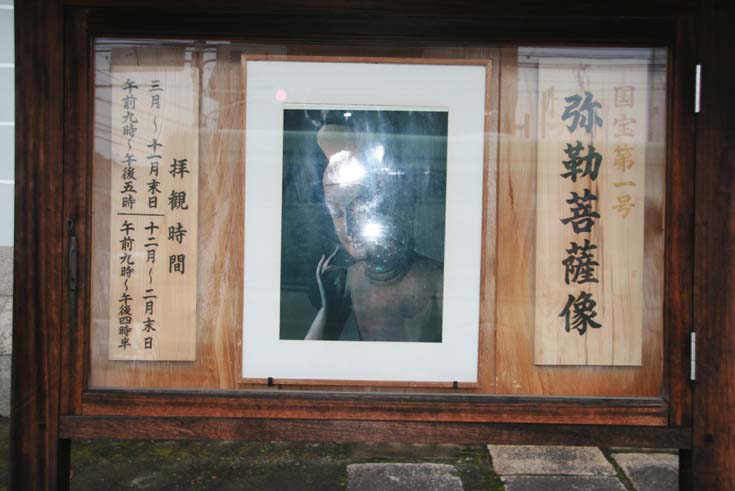 国宝第一号
弥勒菩薩像
拝観時間
三月〜十一月末日
午前九時〜午後五時
十二月〜二月末日
午前九時〜午後四時半